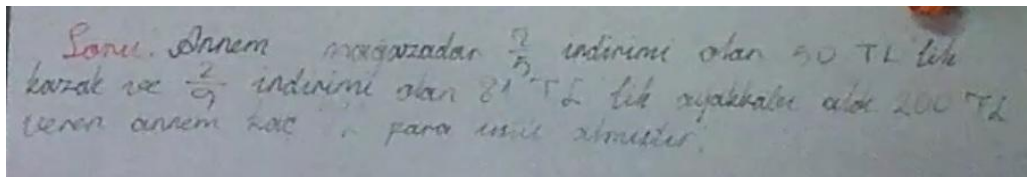 Soru: Annem mağazadan 2/5 indirimi olan 50 TL lik
kazak ve 2/9 indirimi olan 81 TL lik ayakkabı aldı 200 TL
veren annem kaç para üstü almıştır.